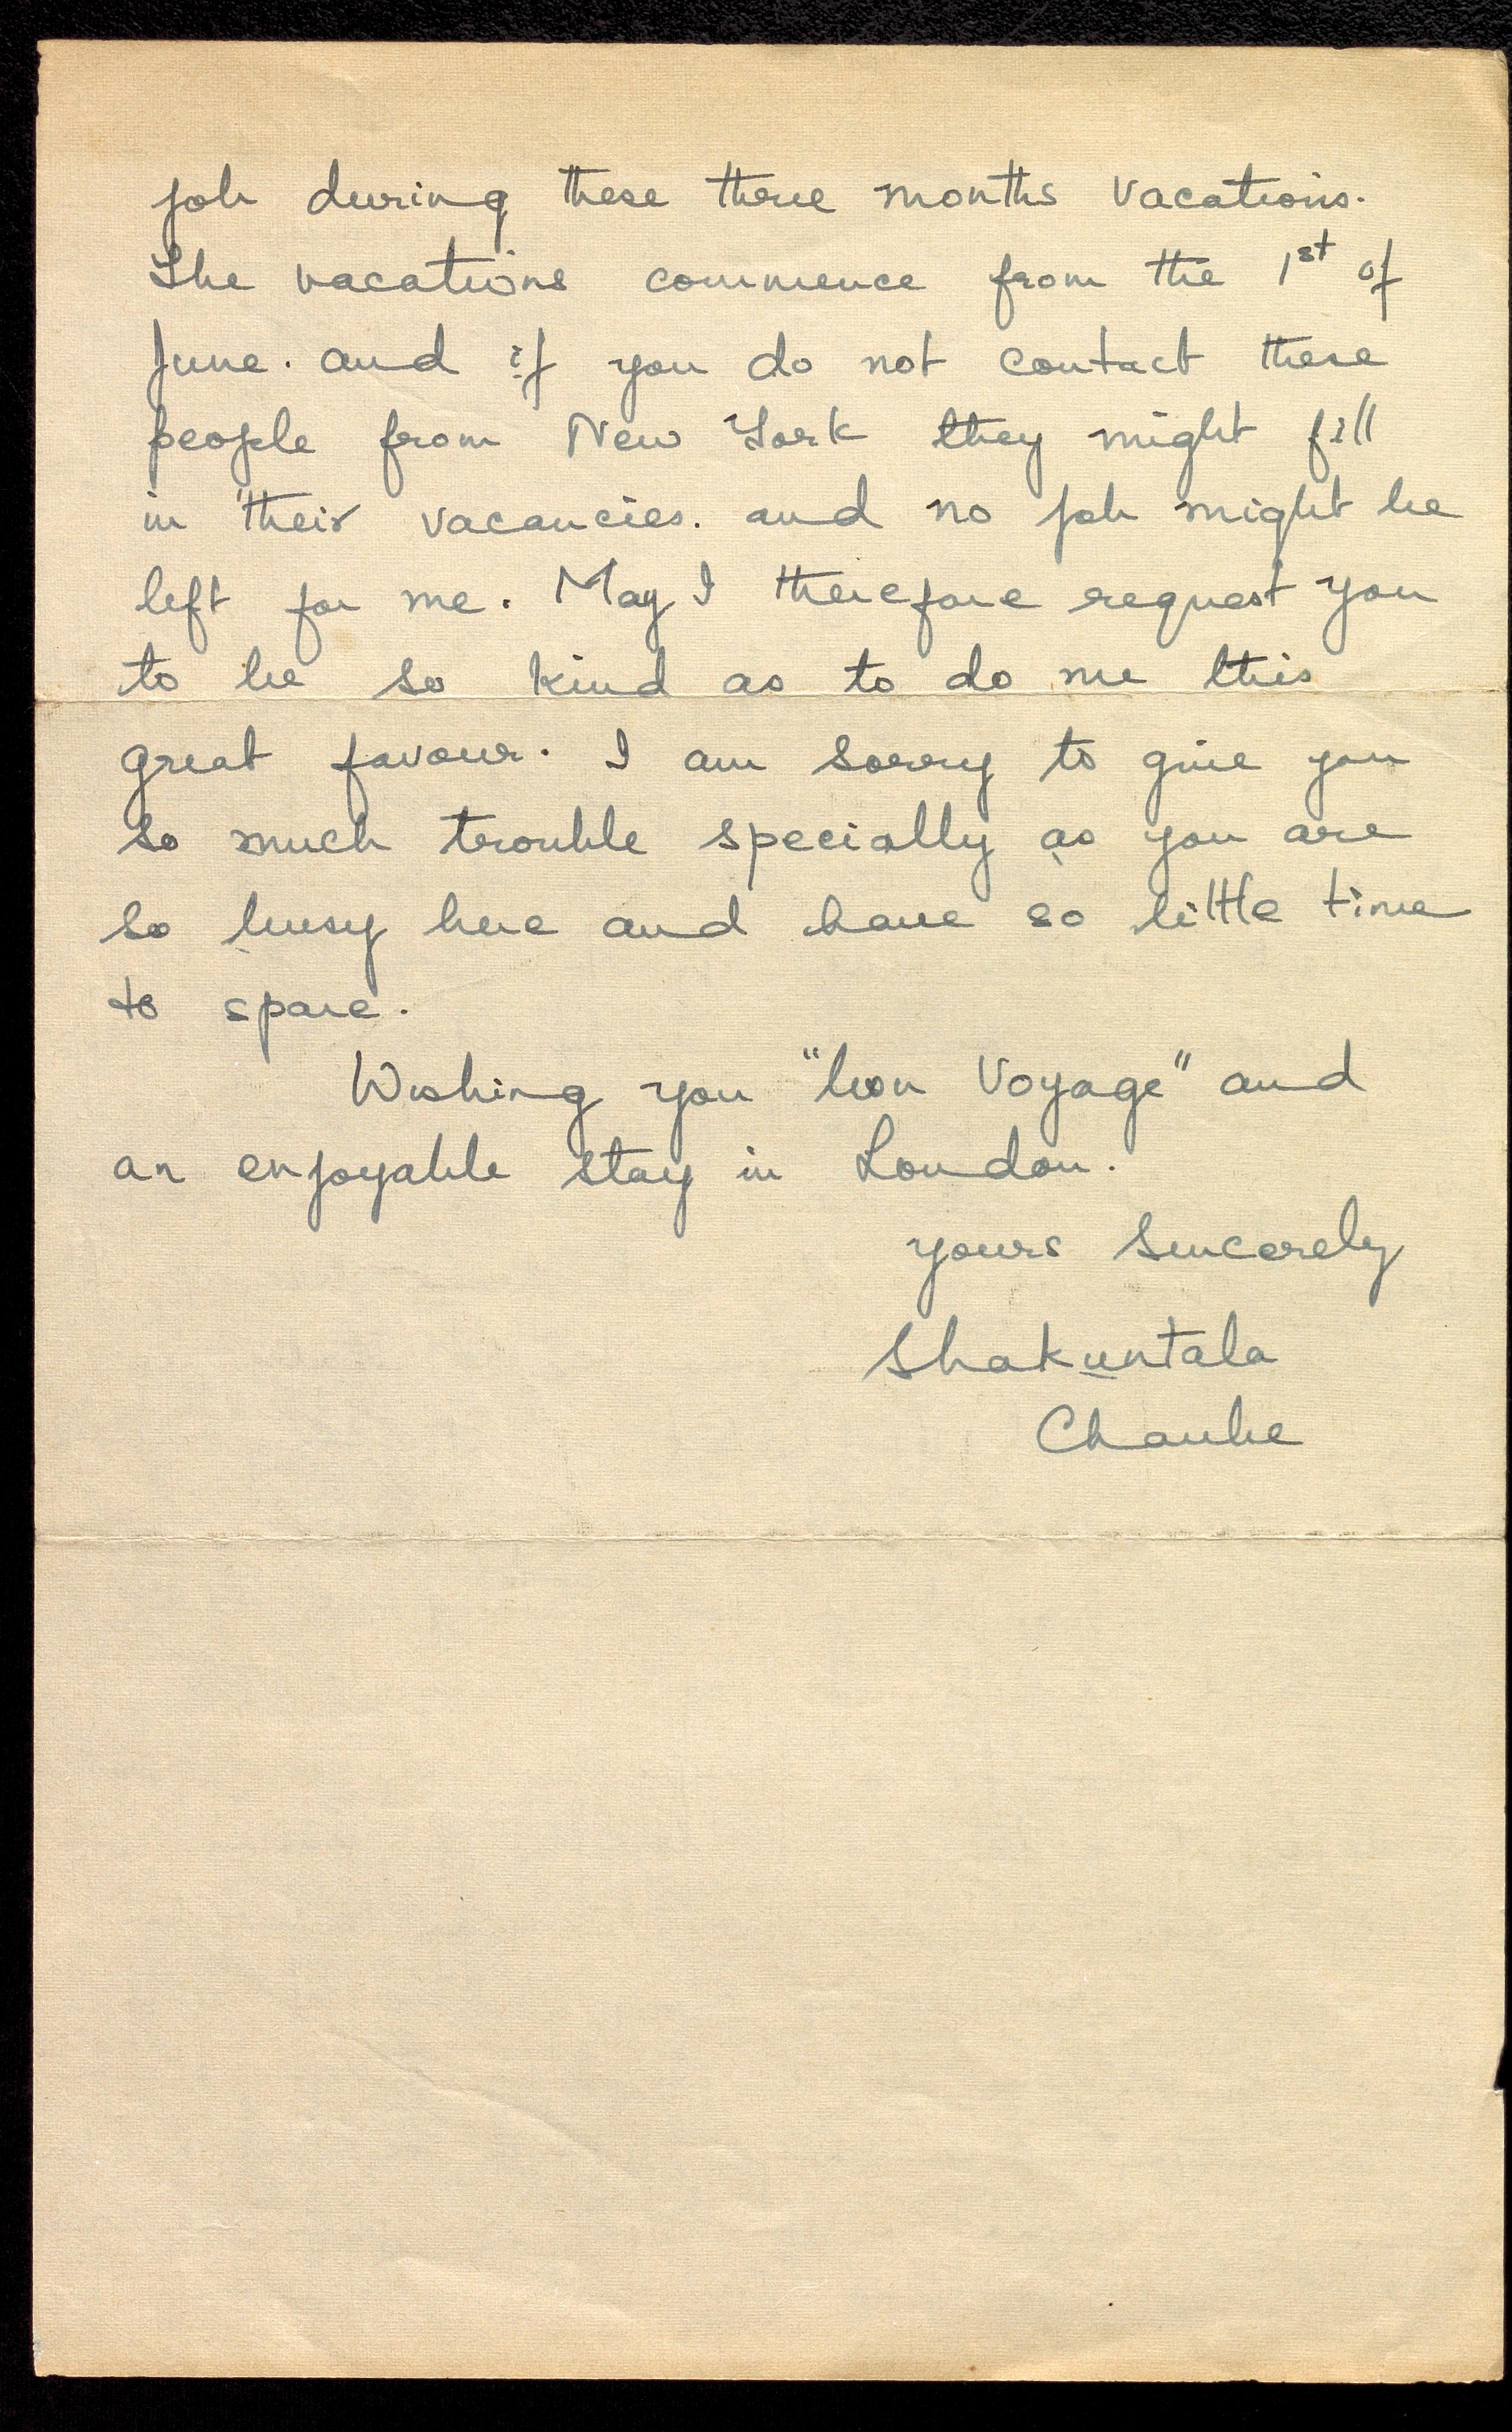 job during these three months vacations.
The vacations commence from the 1st of
June. and if you do not contact these
people from New York they might fill
in their vacancies. and no job might be
left for me. May I therefore request you
to be so kind as to do me this
great favour. I am sorry to give you
so much trouble specially as you are
so busy here and have so little time
to spare.
Wishing you "bon Voyage" and
an enjoyable stay in London.
yours sincerely
Shakuntala
Chaube